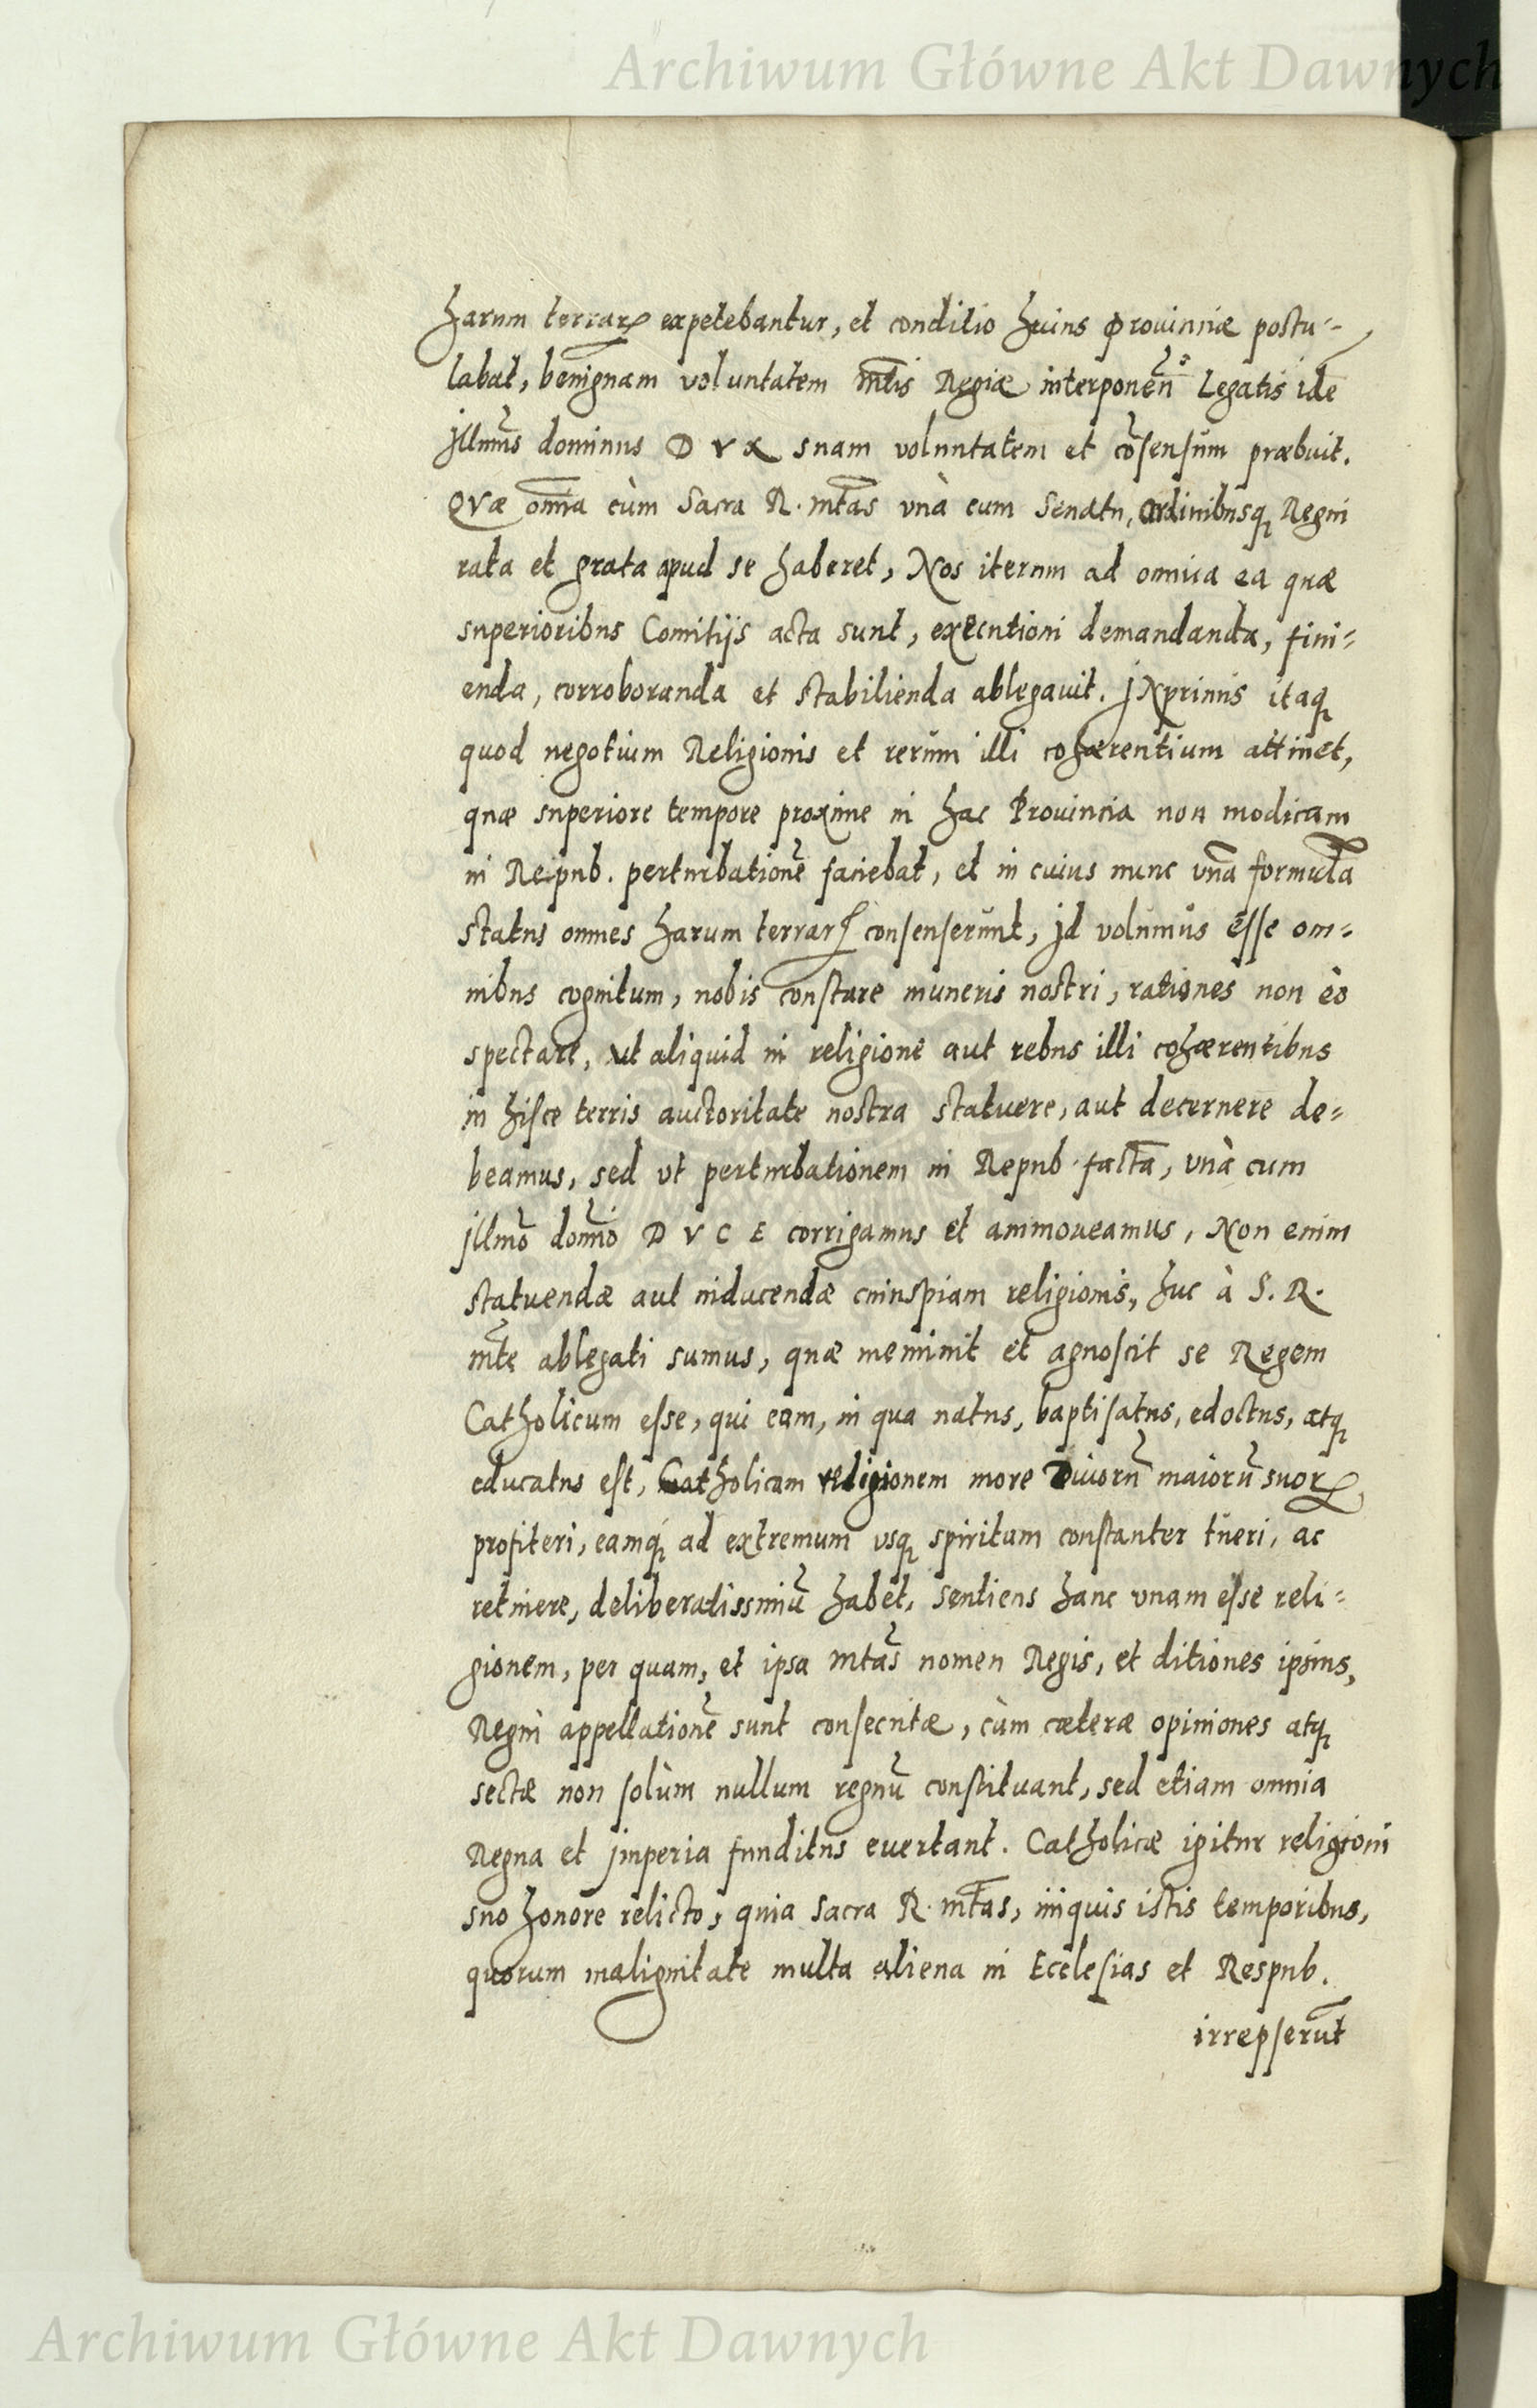 Archiwum Główne Akt Dawnych
harum terrarꝝ expetebantur, et conditio huius Prouinciæ postu-
labat, benignam voluntatem mt̃is Regiæ interponeñ Legatis idẽ
jllmũs dominus DVX suam voluntatem et cõsensum præbuit.
QVæ om̃ia cùm Sacra R. mt̃as vnà cum Senatu, Ordinibusqꝫ Regni
rata et grata apud se haberet, Nos iterum ad omnia ea quæ
superioribus Comitijs acta sunt, executioni demandanda, fini-
enda, corroboranda et stabilienda ablegauit. jNprimis itaqꝫ
quod negotium Religionis et rerum illi cohærentium attinet,
quæ superiore tempore proxime in hac Prouincia non modicam
in Reipub. perturbationẽ faciebat, et in cuius nunc vña formulã
status omnes harum terrarꝝ consenserunt, jd volumus esse om-
nibus cognitum, nobis constare muneris nostri, rationes non eò
spectare, vt aliquid in religione aut rebus illi cohærentibus
in hisce terris auctoritate nostra statuere, aut decernere de-
beamus, sed vt perturbationem in Repub. factã, vnà cum
jllmõ domĩo DVCE corrigamus et ammoueamus, Non enim
statuendæ aut inducendæ cuiuspiam religionis, huc à S. R.
mt̃e ablegati sumus, quæ meminit et agnoscit se Regem
Catholicum esse, qui eam, in qua natus, baptisatus, edoctus, atqꝫ
educatus est, Catholicam religionem more Diuorũ maiorũ suorꝝ
profiteri, eamqꝫ ad extremum vsqꝫ spiritum constanter tueri, ac
retinere, deliberatissimũ habet, sentiens hanc vnam esse reli-
gionem, per quam, et ipsa mt̃as nomen Regis, et ditiones ipsius,
Regni appellationẽ sunt consecutæ, cùm cæteræ opiniones atqꝫ
sectæ non solùm nullum regnũ constituant, sed etiam omnia
Regna et jmperia funditus euertant. Catholicæ igitur religioni
suo honore relicto, quia Sacra R. mt̃as, iniquis istis temporibus,
quorum malignitate multa aliena in Ecclesias et Respub.
irrepserũt
Archiwum Główne Akt Dawnych